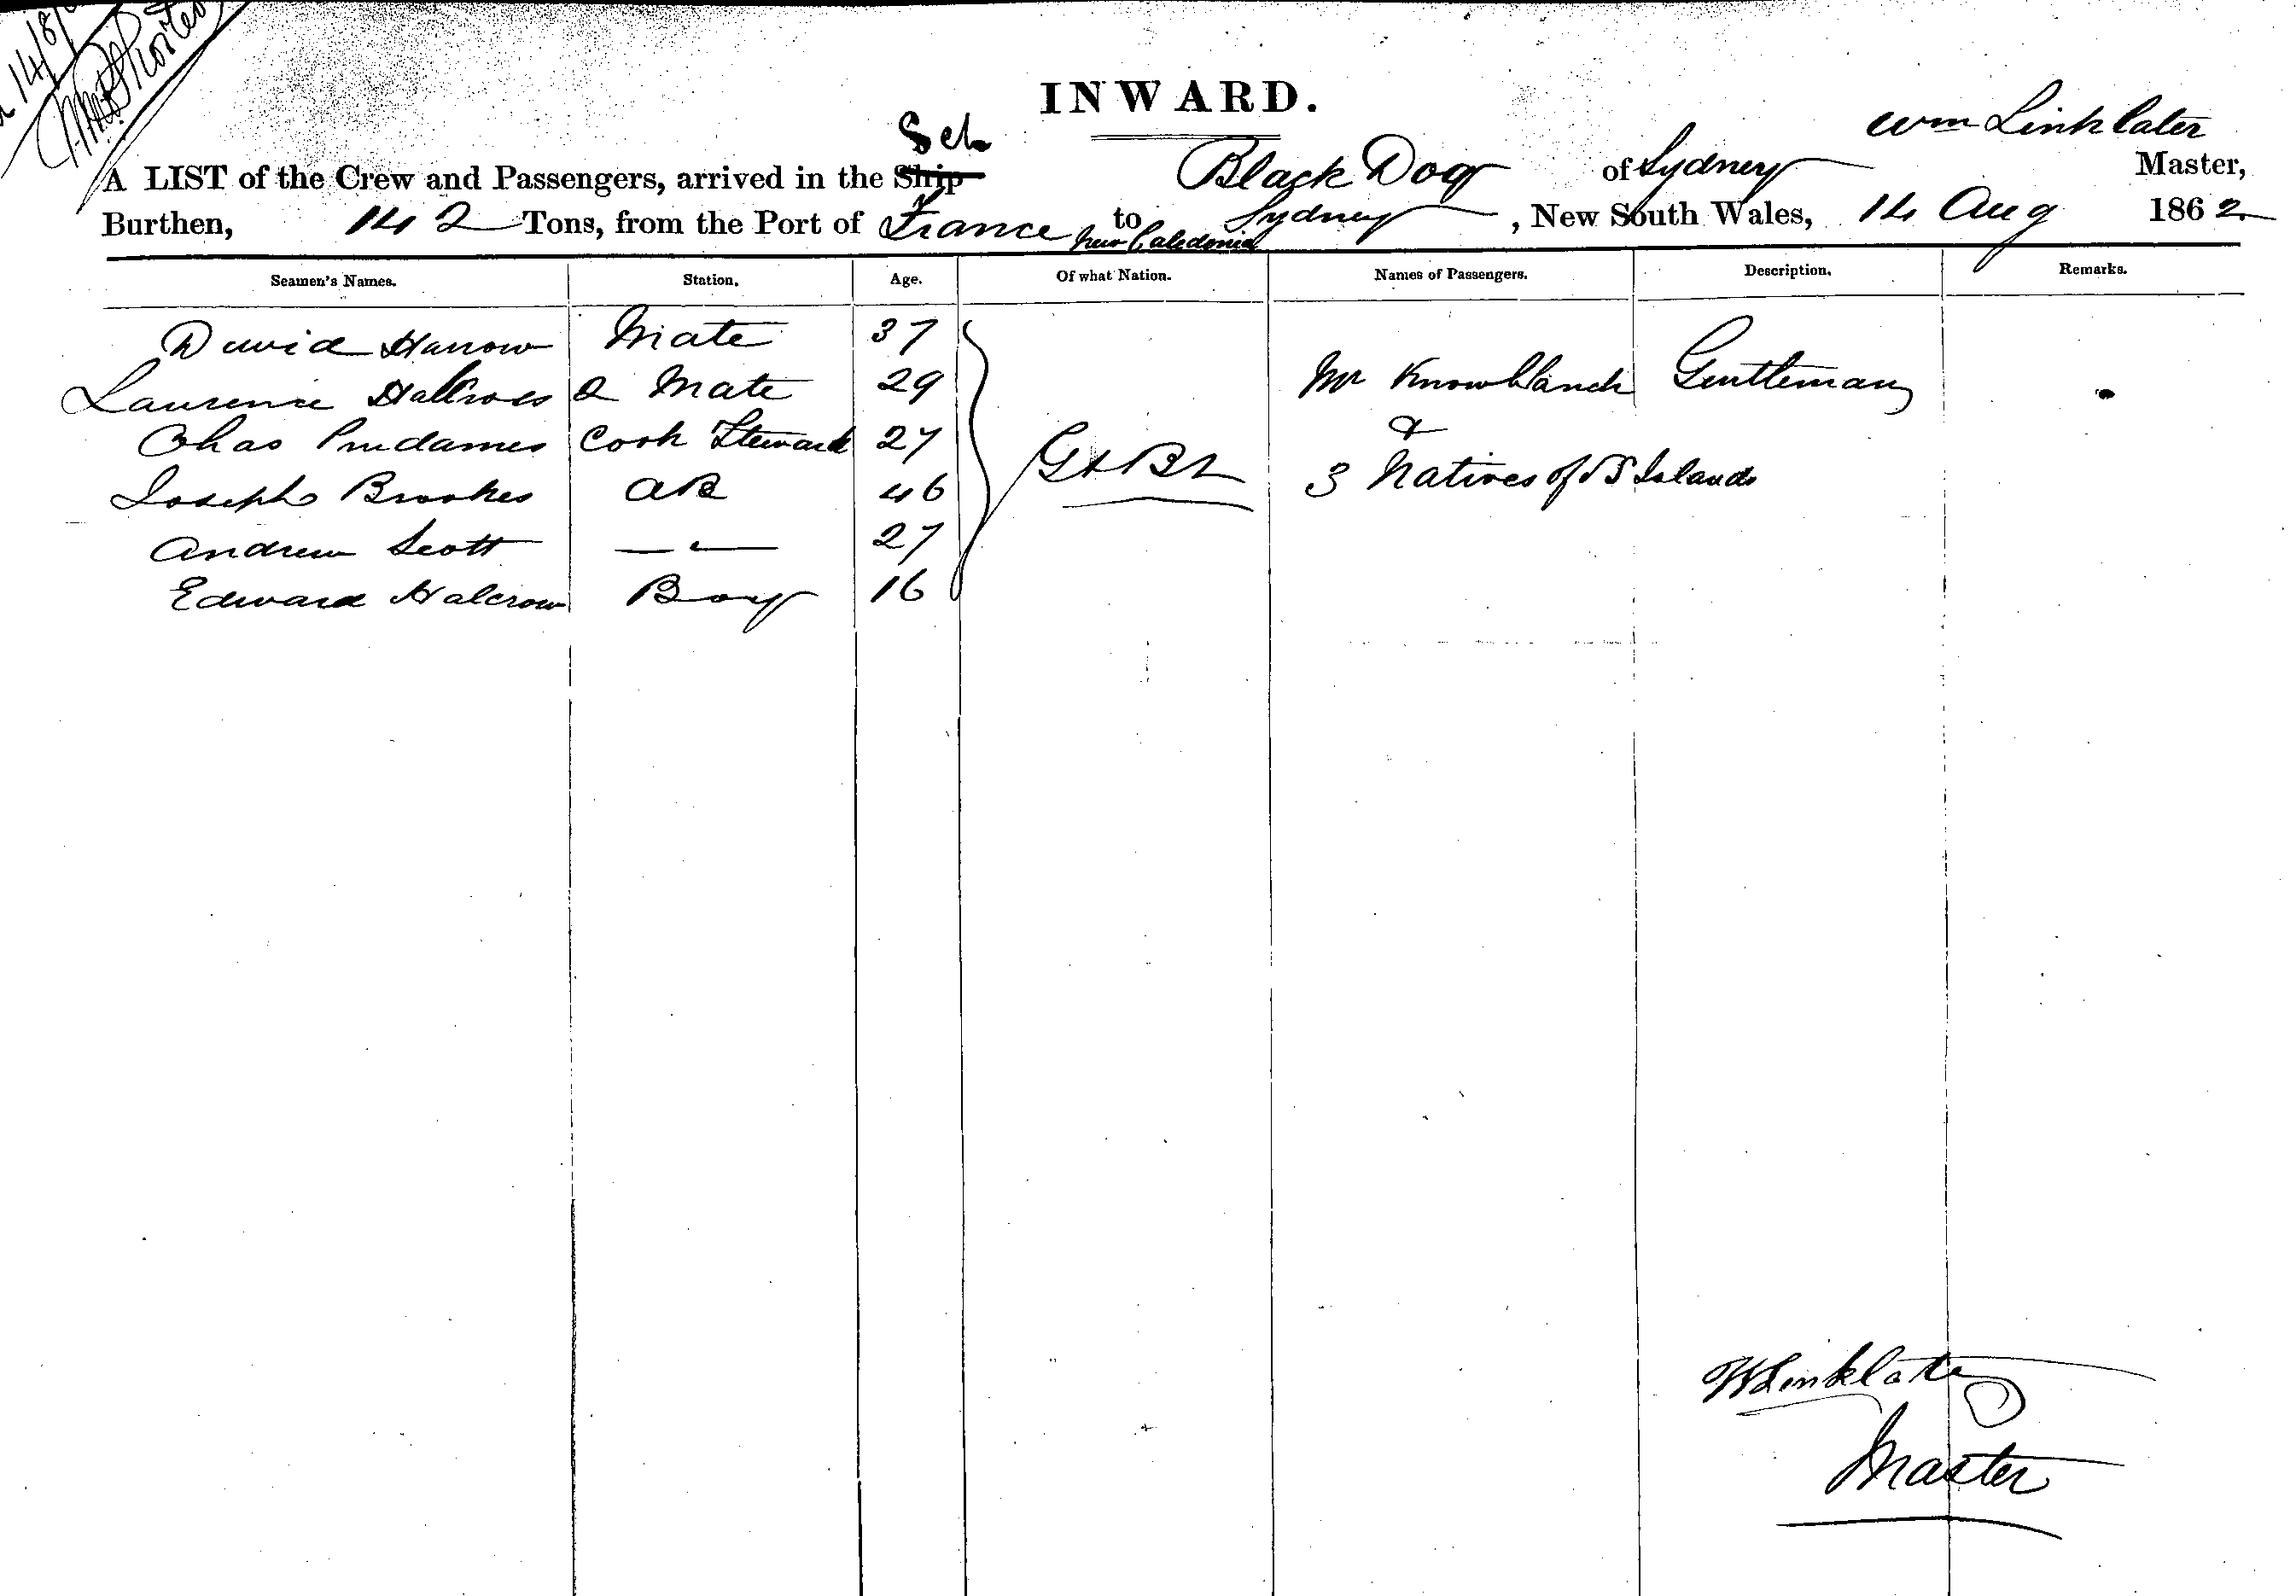 14/8/
INWARD.
Wm Linklater
Sch
A LIST of the Crew and Passengers, arrived in the Ship Black Dog of Sydney Master,
Burthen, 142 Tons, from the Port of France to Sydney, New South Wales, 14 Aug 1862
New Caledonia
Seamen's Names. Station. Age. Of what Nation. Names of Passengers. Description. Remarks.
David Harrow Mate 37
Laurence Halcrow 2 Mate 29 Mr Knowblanch Gentleman
Chas Prudames Cook Steward 27 &
Joseph Brookes AB 46 Gt Bn 3 Natives of S Islands
Andrew Scott — " — 27
Edward Halcrow Boy 16
W Linklater
Master